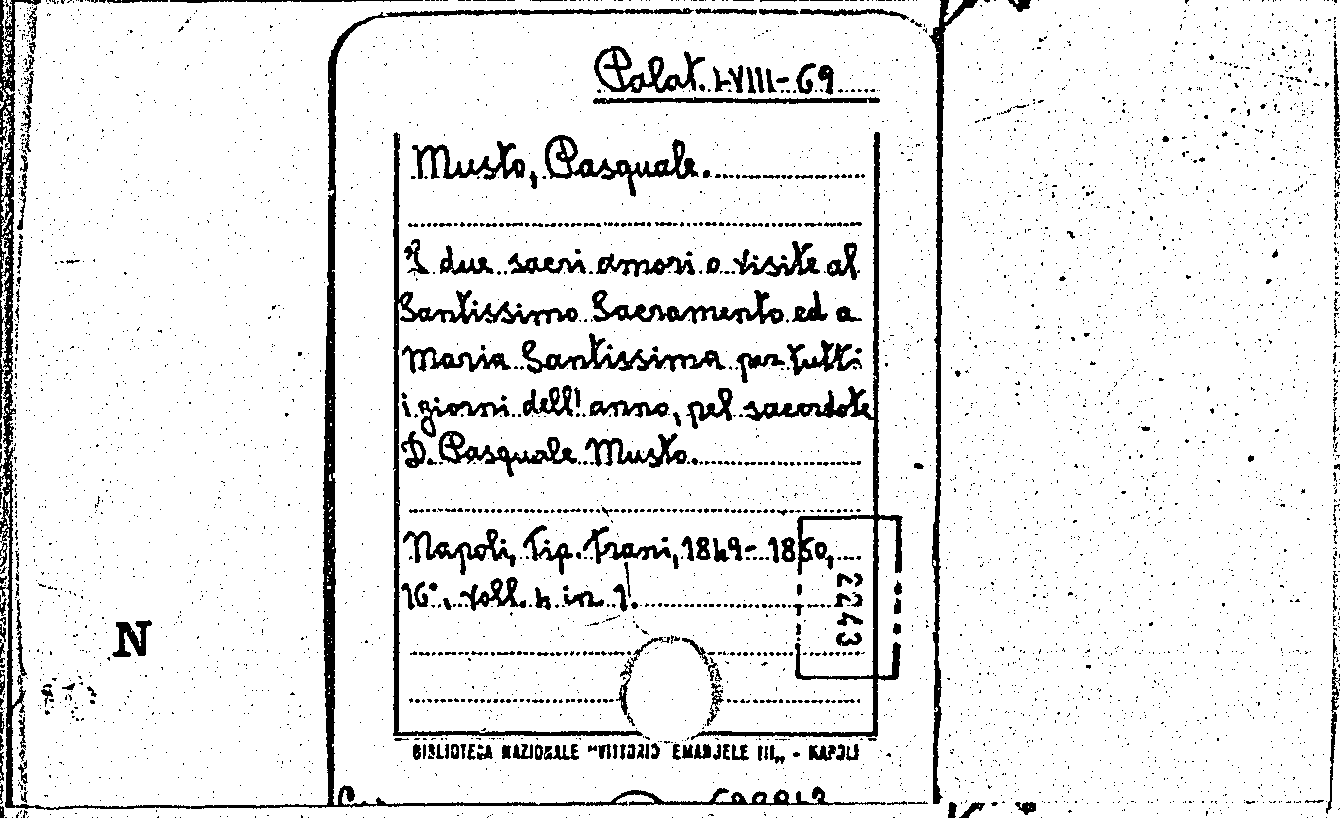 Palat. LVIII-69
Musto, Pasquale.
I due sacri amori o visite al
Santissimo Sacramento ed a
Maria Santissima per tutti
i giorni dell'anno, pel sacerdote
D. Pasquale Musto.
Napoli, Tip. Trani, 1849-1850,
16°, voll. 4 in 1.
2243
N
BIBLIOTECA NAZIONALE "VITTORIO EMANUELE III„ - NAPOLI